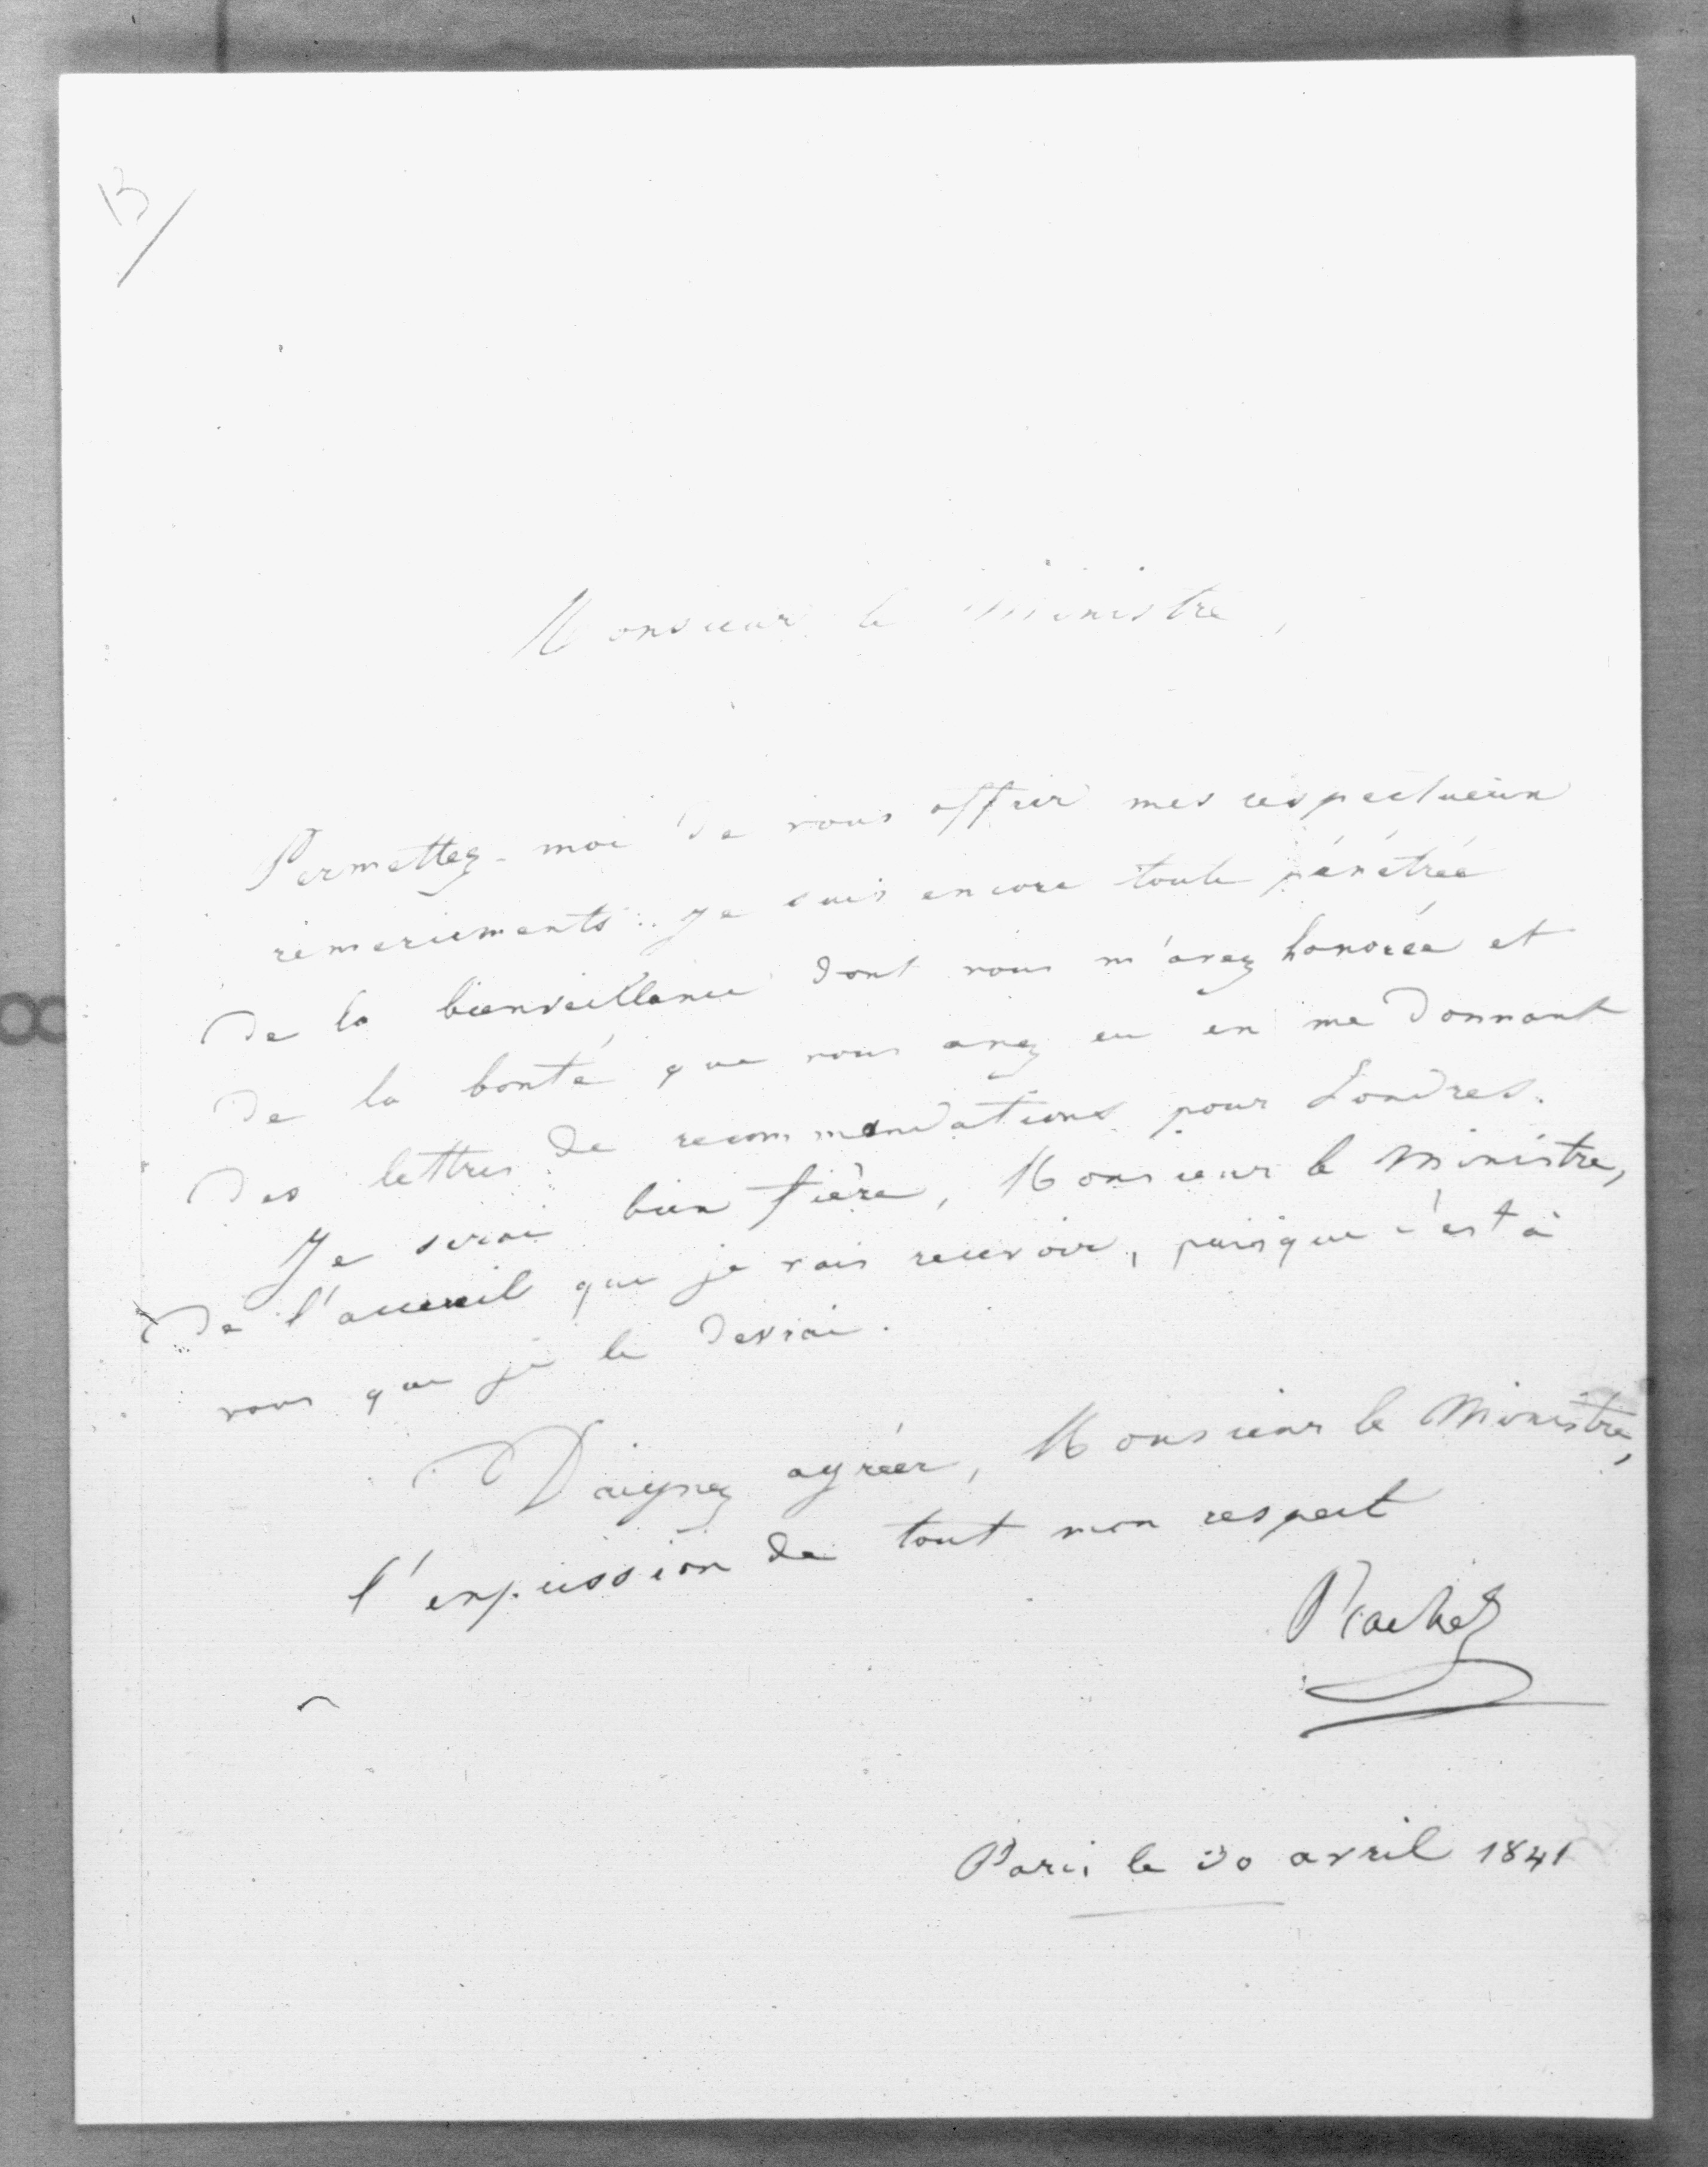 13
Monsieur le Ministre,
Permettez-moi de vous offrir mes respectueux
remerciements. Je suis encore toute pénétrée
de la bienveillance dont vous m'avez honorée et
de la bonté que vous avez eu en me donnant
des lettres de recommandations pour Londres.
Je serai bien fière, Monsieur le Ministre,
de l'accueil que je vais recevoir, puisque c'est à
vous que je le devrai.
Daignez agréer, Monsieur le Ministre,
l'expression de tout mon respect
Rachel
Paris le 30 avril 1841